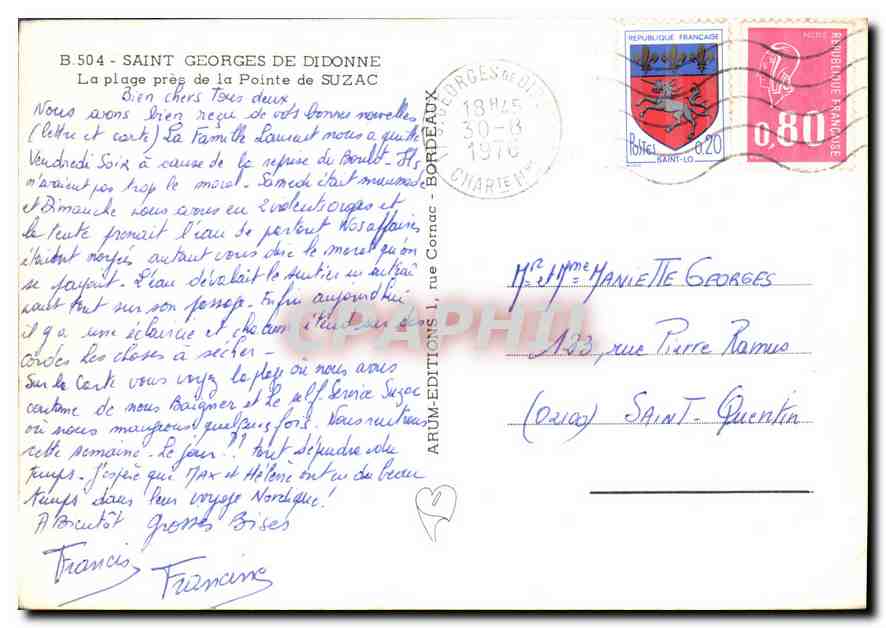 B.504 - SAINT GEORGES DE DIDONNE
La plage près de la Pointe de SUZAC
Bien chers Tous deux
Nous avons bien reçu de vots bonnes nouvelles
(lettre et carte) La Famille Laurent nous a quitté
Vendredi Soir à cause de la reprise du Boulot. Ils
n'avaient pas trop le moral. Samedi était
et Dimanche nous avons eu 2 violents orages et
la tente prenait l'eau de partout Nos affaires
étaient noyées autant vous dire le moral qu'on
se payait. L'eau dévalait le sentier en
tout sur son passage. Enfin aujourd'hui
il y a une éclaircie et chacun étend sur des
cordes les choses à sécher -
Sur la Carte vous voyez la plage où nous avons
coutume de nous Baigner et le self Service Suzac
où nous mangeons quelques fois. Nous rentrons
cette semaine. Le jour?? tout dépendra du
temps. J'espère que MAX et Hélène ont eu du beau
temps dans leur voyage Nordique!
A Bientôt Grosses Bises
Francis
Francine
ARUM-EDITIONS 1, rue Cornac - BORDEAUX
ST GEORGES DE DID.
18H45
30-8
1976
CHARTE Mme
REPUBLIQUE FRANÇAISE
POSTES 0,20
SAINT-LO
POSTES
0,80
REPUBLIQUE FRANÇAISE
Mr et Mme MANIETTE GEORGES
123, rue Pierre Ramus
(02100) SAINT-Quentin
CPAPHIL